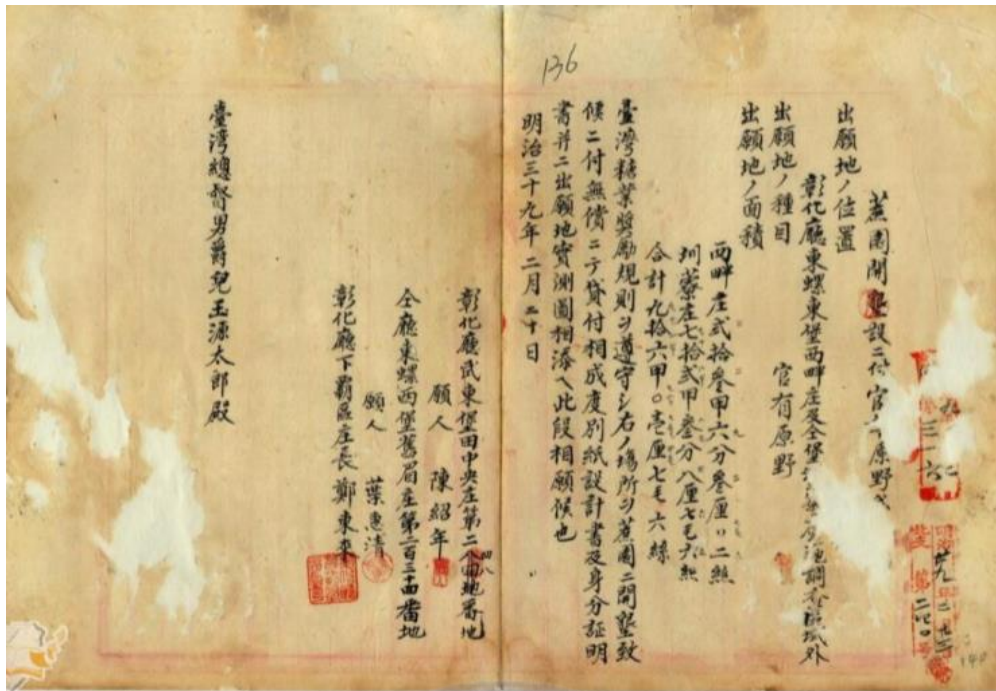 136
蔗園開墾設ニ付官
原野
出願地ノ位置
彰化廳東螺東堡西畔庄及仝堡
區域外
出願地ノ種目
官有原野
出願地ノ面積
西畔庄弐拾參甲六分參厘〃二絲
圳藔庄七拾弐甲參分八厘七毛六絲
合計九拾六甲〇壱厘七毛六絲
臺灣糖業奬勵規則ヲ遵守シ右ノ塲所ヲ蔗園ニ開墾致
候ニ付無償ニテ貸付相成度別紙設計書及身分証明
書并ニ出願地實測圖相添ヘ此段相願候也
明治三十九年二月二十日
彰化廳武東堡田中央庄第二
番地
願人 陳紹年
仝廳東螺西堡舊眉庄第二百三十四番地
願人 葉惠清
彰化廳下霸區庄長 鄭東
臺灣總督男爵兒玉源太郎殿
140